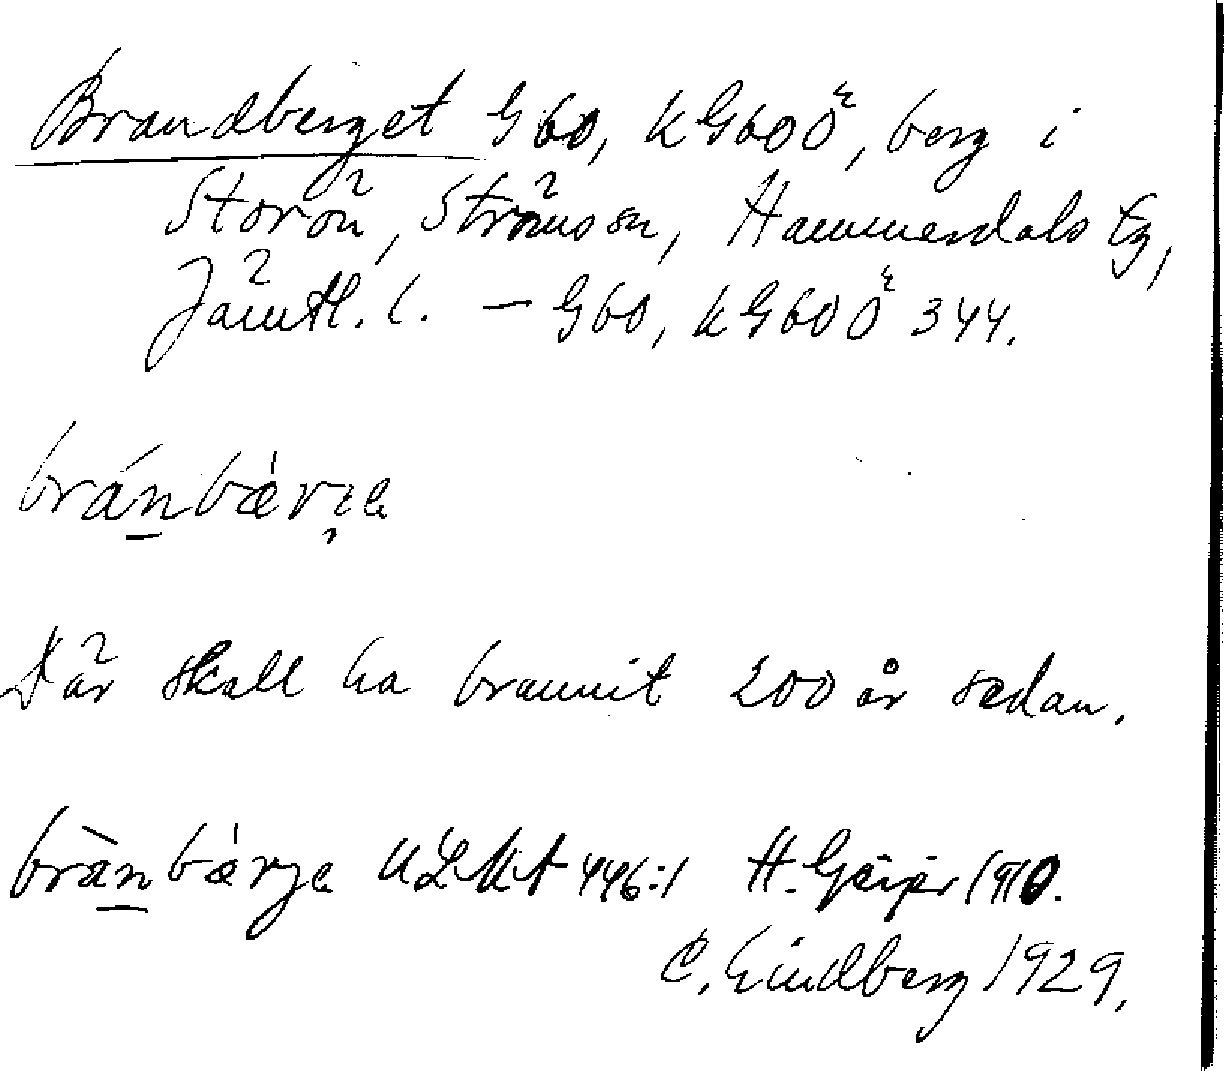 Brandberget G60, kG60Ö, berg i
Storön, Ströms sn, Hammerdals tg,
Jämtl. l. – G60, kG60Ö 344.
bránbǽrje
Där skall ha brunnit 200 år sedan.
brànbǽrje ULMA 446:1 H. Geijer 1910.
C. Lindberg 1929.